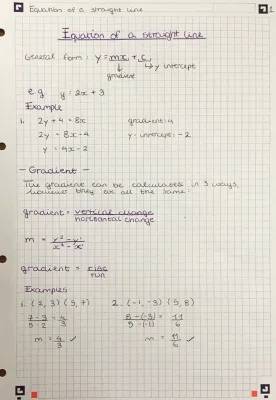 Equation of a straight line
1
Equation of a straight line
General form: y = mx + c
y intercept
gradient
e.g y = 2x + 3
Example
1. 2y + 4 = 8x gradient: 4
2y = 8x - 4 y-intercept: -2
y = 4x - 2
- Gradient -
The gradient can be calculated in 3 ways,
however they are all the same:
gradient = vertical change
horizontal change
m = y² - y¹
x² - x¹
gradient = rise
run
Examples
1. (2, 3) (5, 7) 2. (-1, -3) (5, 8)
7-3 = 4 8-(-3) = 11
5-2 3 5-(-1) 6
m = 4 ✓ m = 11 ✓
3 6